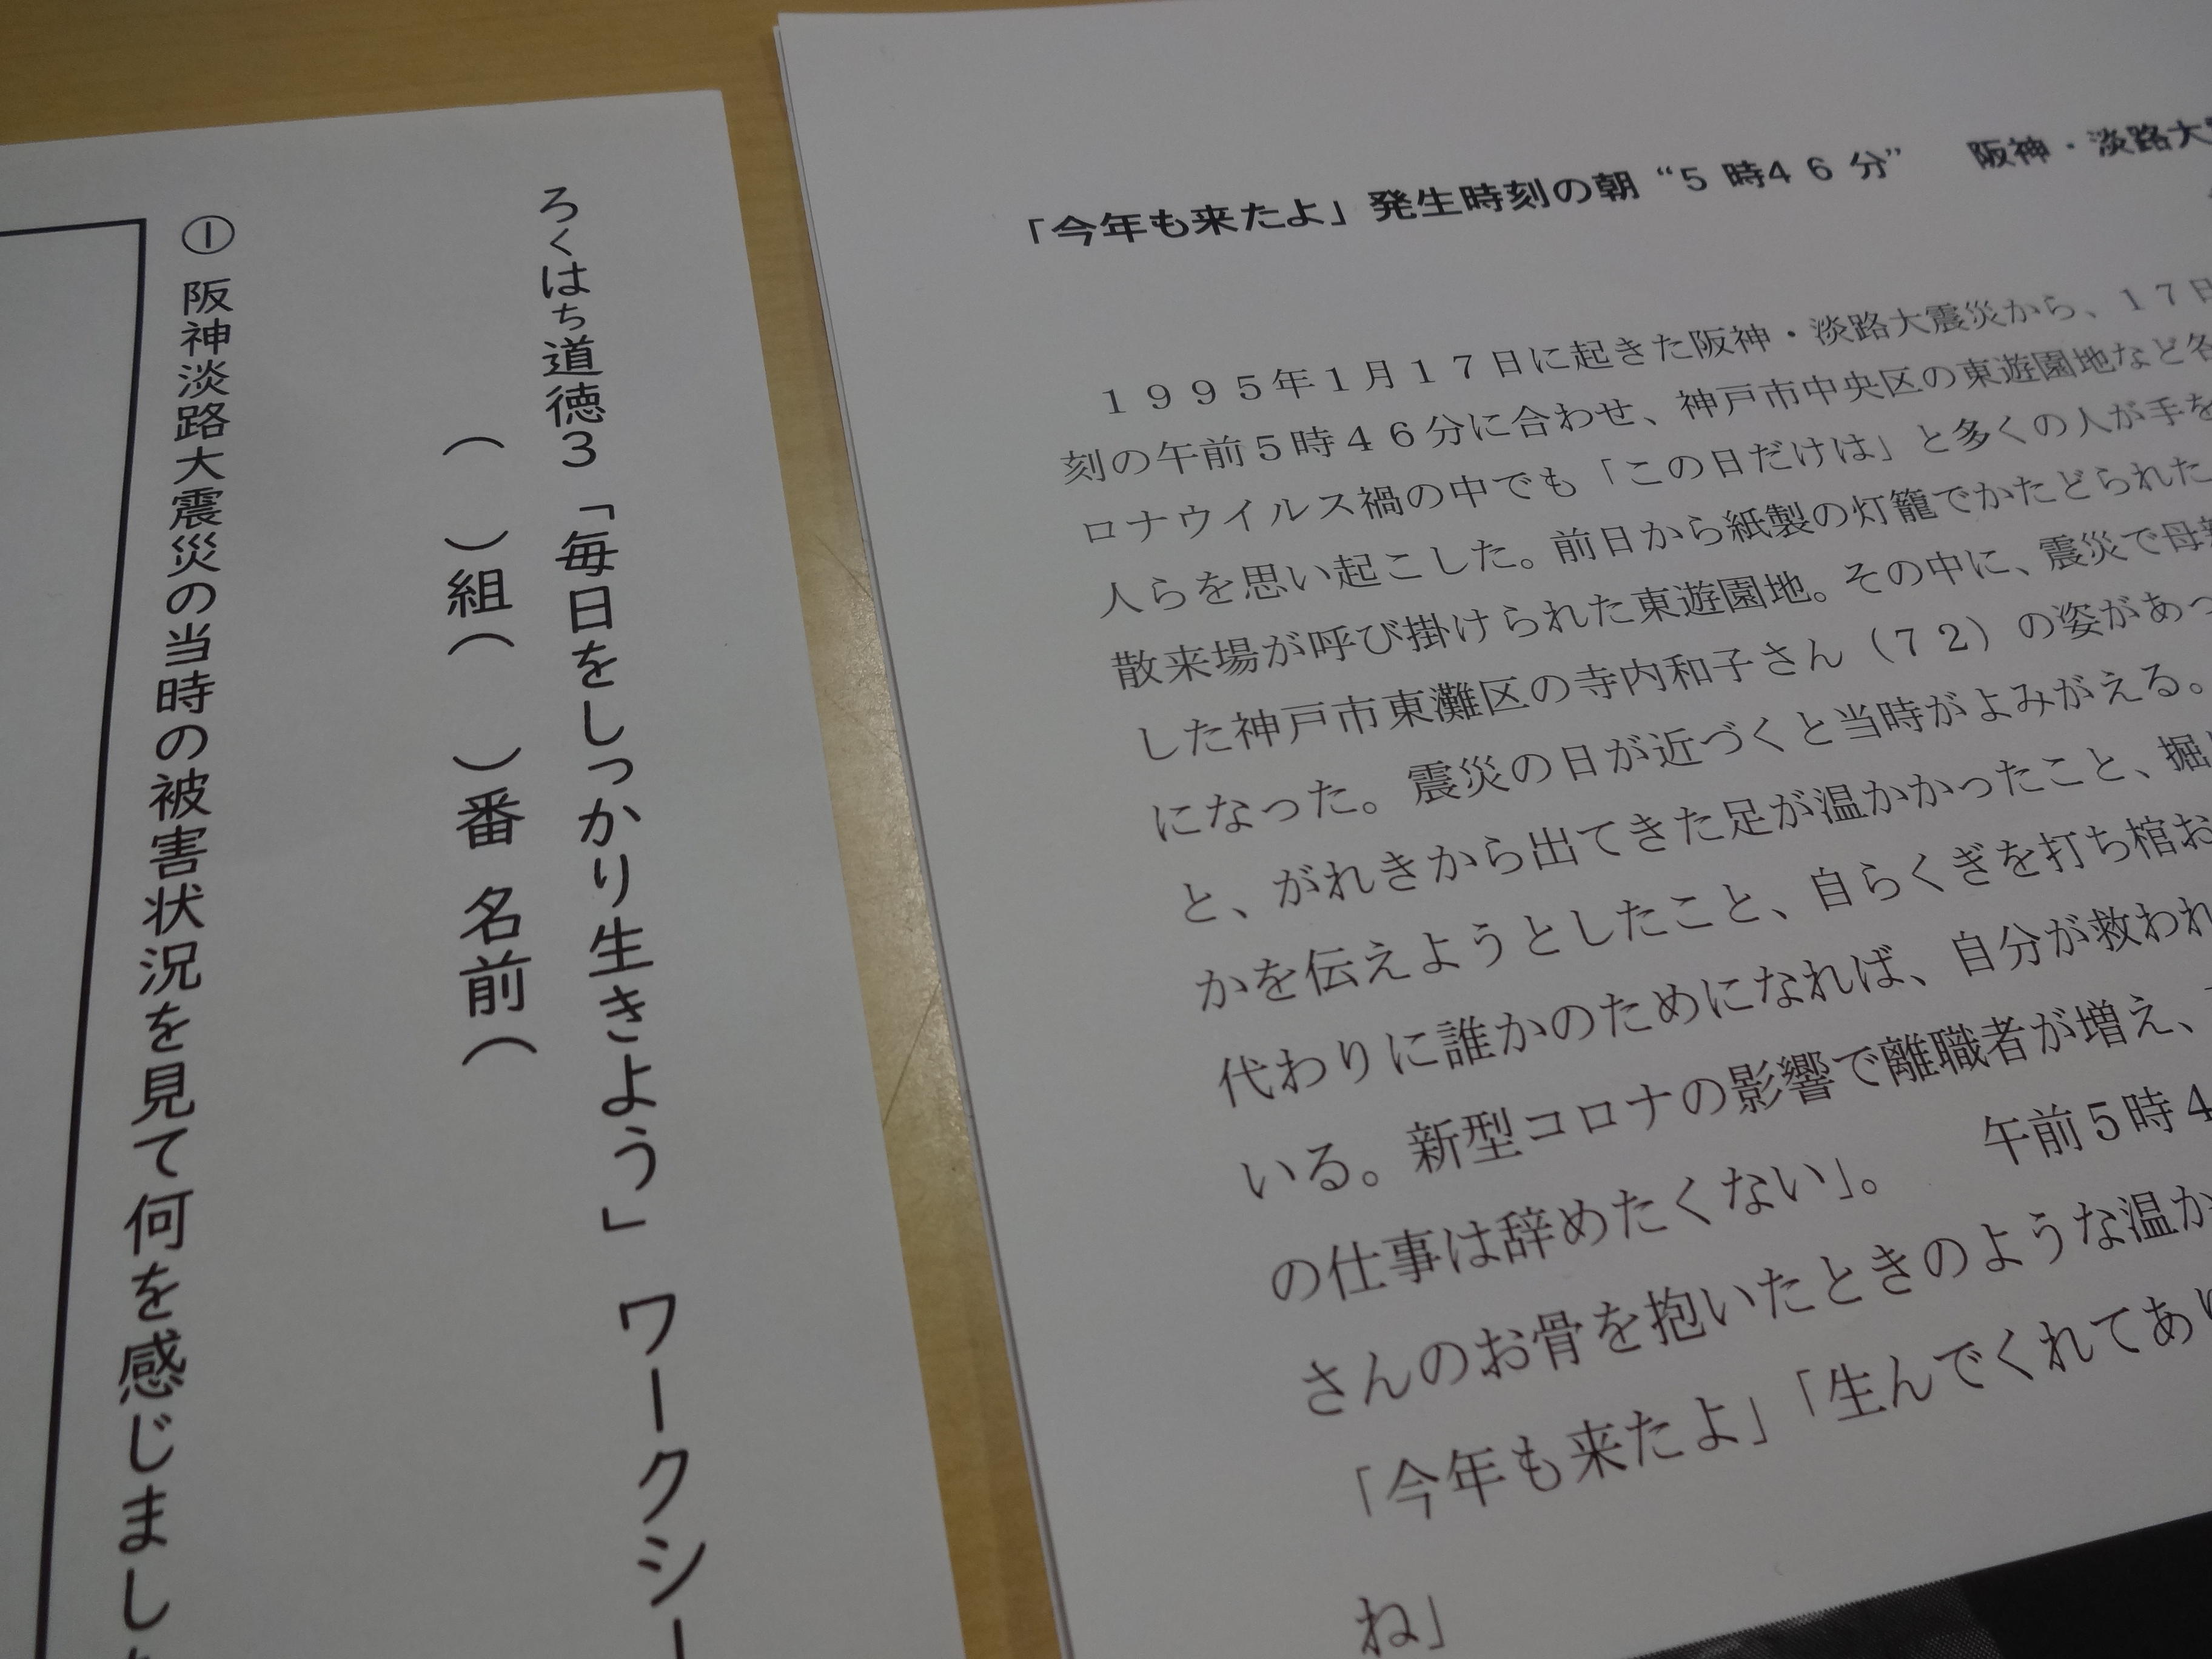 ろくはち道徳3「毎日をしっかり生きよう」ワークシー
（　）組（　）番 名前（
① 阪神淡路大震災の当時の被害状況を見て何を感じまし
「今年も来たよ」発生時刻の朝“５時４６分”　阪神・淡路大
１９９５年１月１７日に起きた阪神・淡路大震災から、１７日
刻の午前５時４６分に合わせ、神戸市中央区の東遊園地など各
ロナウイルス禍の中でも「この日だけは」と多くの人が手を
人らを思い起こした。前日から紙製の灯籠でかたどられた
散来場が呼び掛けられた東遊園地。その中に、震災で母親
した神戸市東灘区の寺内和子さん（７２）の姿があっ
になった。震災の日が近づくと当時がよみがえる。
と、がれきから出てきた足が温かかったこと、掘り
かを伝えようとしたこと、自らくぎを打ち棺お
代わりに誰かのためになれば、自分が救われ
いる。新型コロナの影響で離職者が増え、
の仕事は辞めたくない」。　午前５時４
さんのお骨を抱いたときのような温か
「今年も来たよ」「生んでくれてあり
ね」